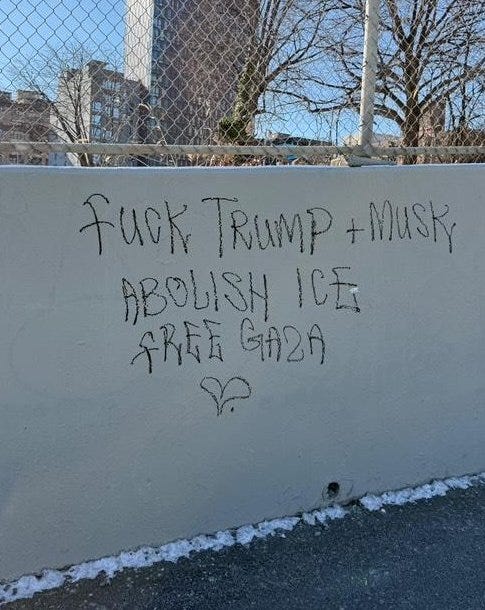 FUCK TRUMP + MUSK
ABOLISH ICE
FREE GAZA